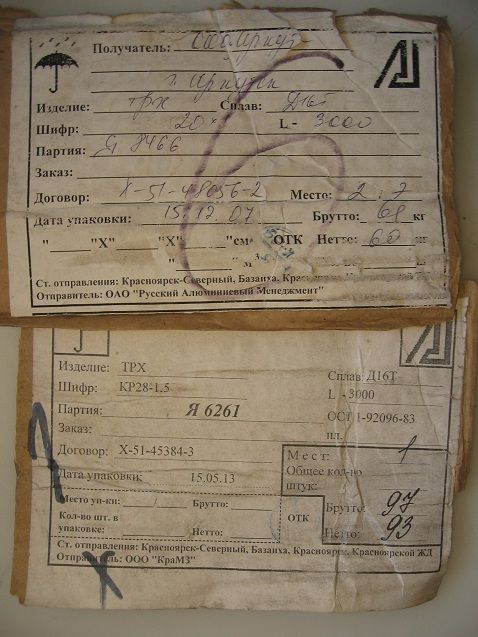 Получатель:
г. Иркутск
Изделие: трх Сплав: Д16Т
Шифр: 20х L - 3000
Партия: Я 8466
Заказ:
Договор: Х-51-48056-2 Место: 2-7
Дата упаковки: 15.12.07 Брутто: 61 кг
" "Х" "Х" "см³ ОТК Нетто: 60 кг
" "м³
Ст. отправления: Красноярск-Северный, Базаиха,
Отправитель: ОАО "Русский Алюминиевый Менеджмент"
Изделие: ТРХ Сплав: Д16Т
Шифр: КР28-1.5 L -3000
Партия: Я 6261 ОСТ 1-92096-83
Заказ: пл.
Договор: Х-51-45384-3 Мест: 1
Общее кол-во
Дата упаковки: 15.05.13 штук:
Место уп-ки: Брутто: Брутто: 97
Кол-во шт. в ОТК
упаковке: Нетто: Нетто: 93
Ст. отправления: Красноярск-Северный, Базаиха, Красноярск, Красноярской ЖД
Отправитель: ООО "КраМЗ"